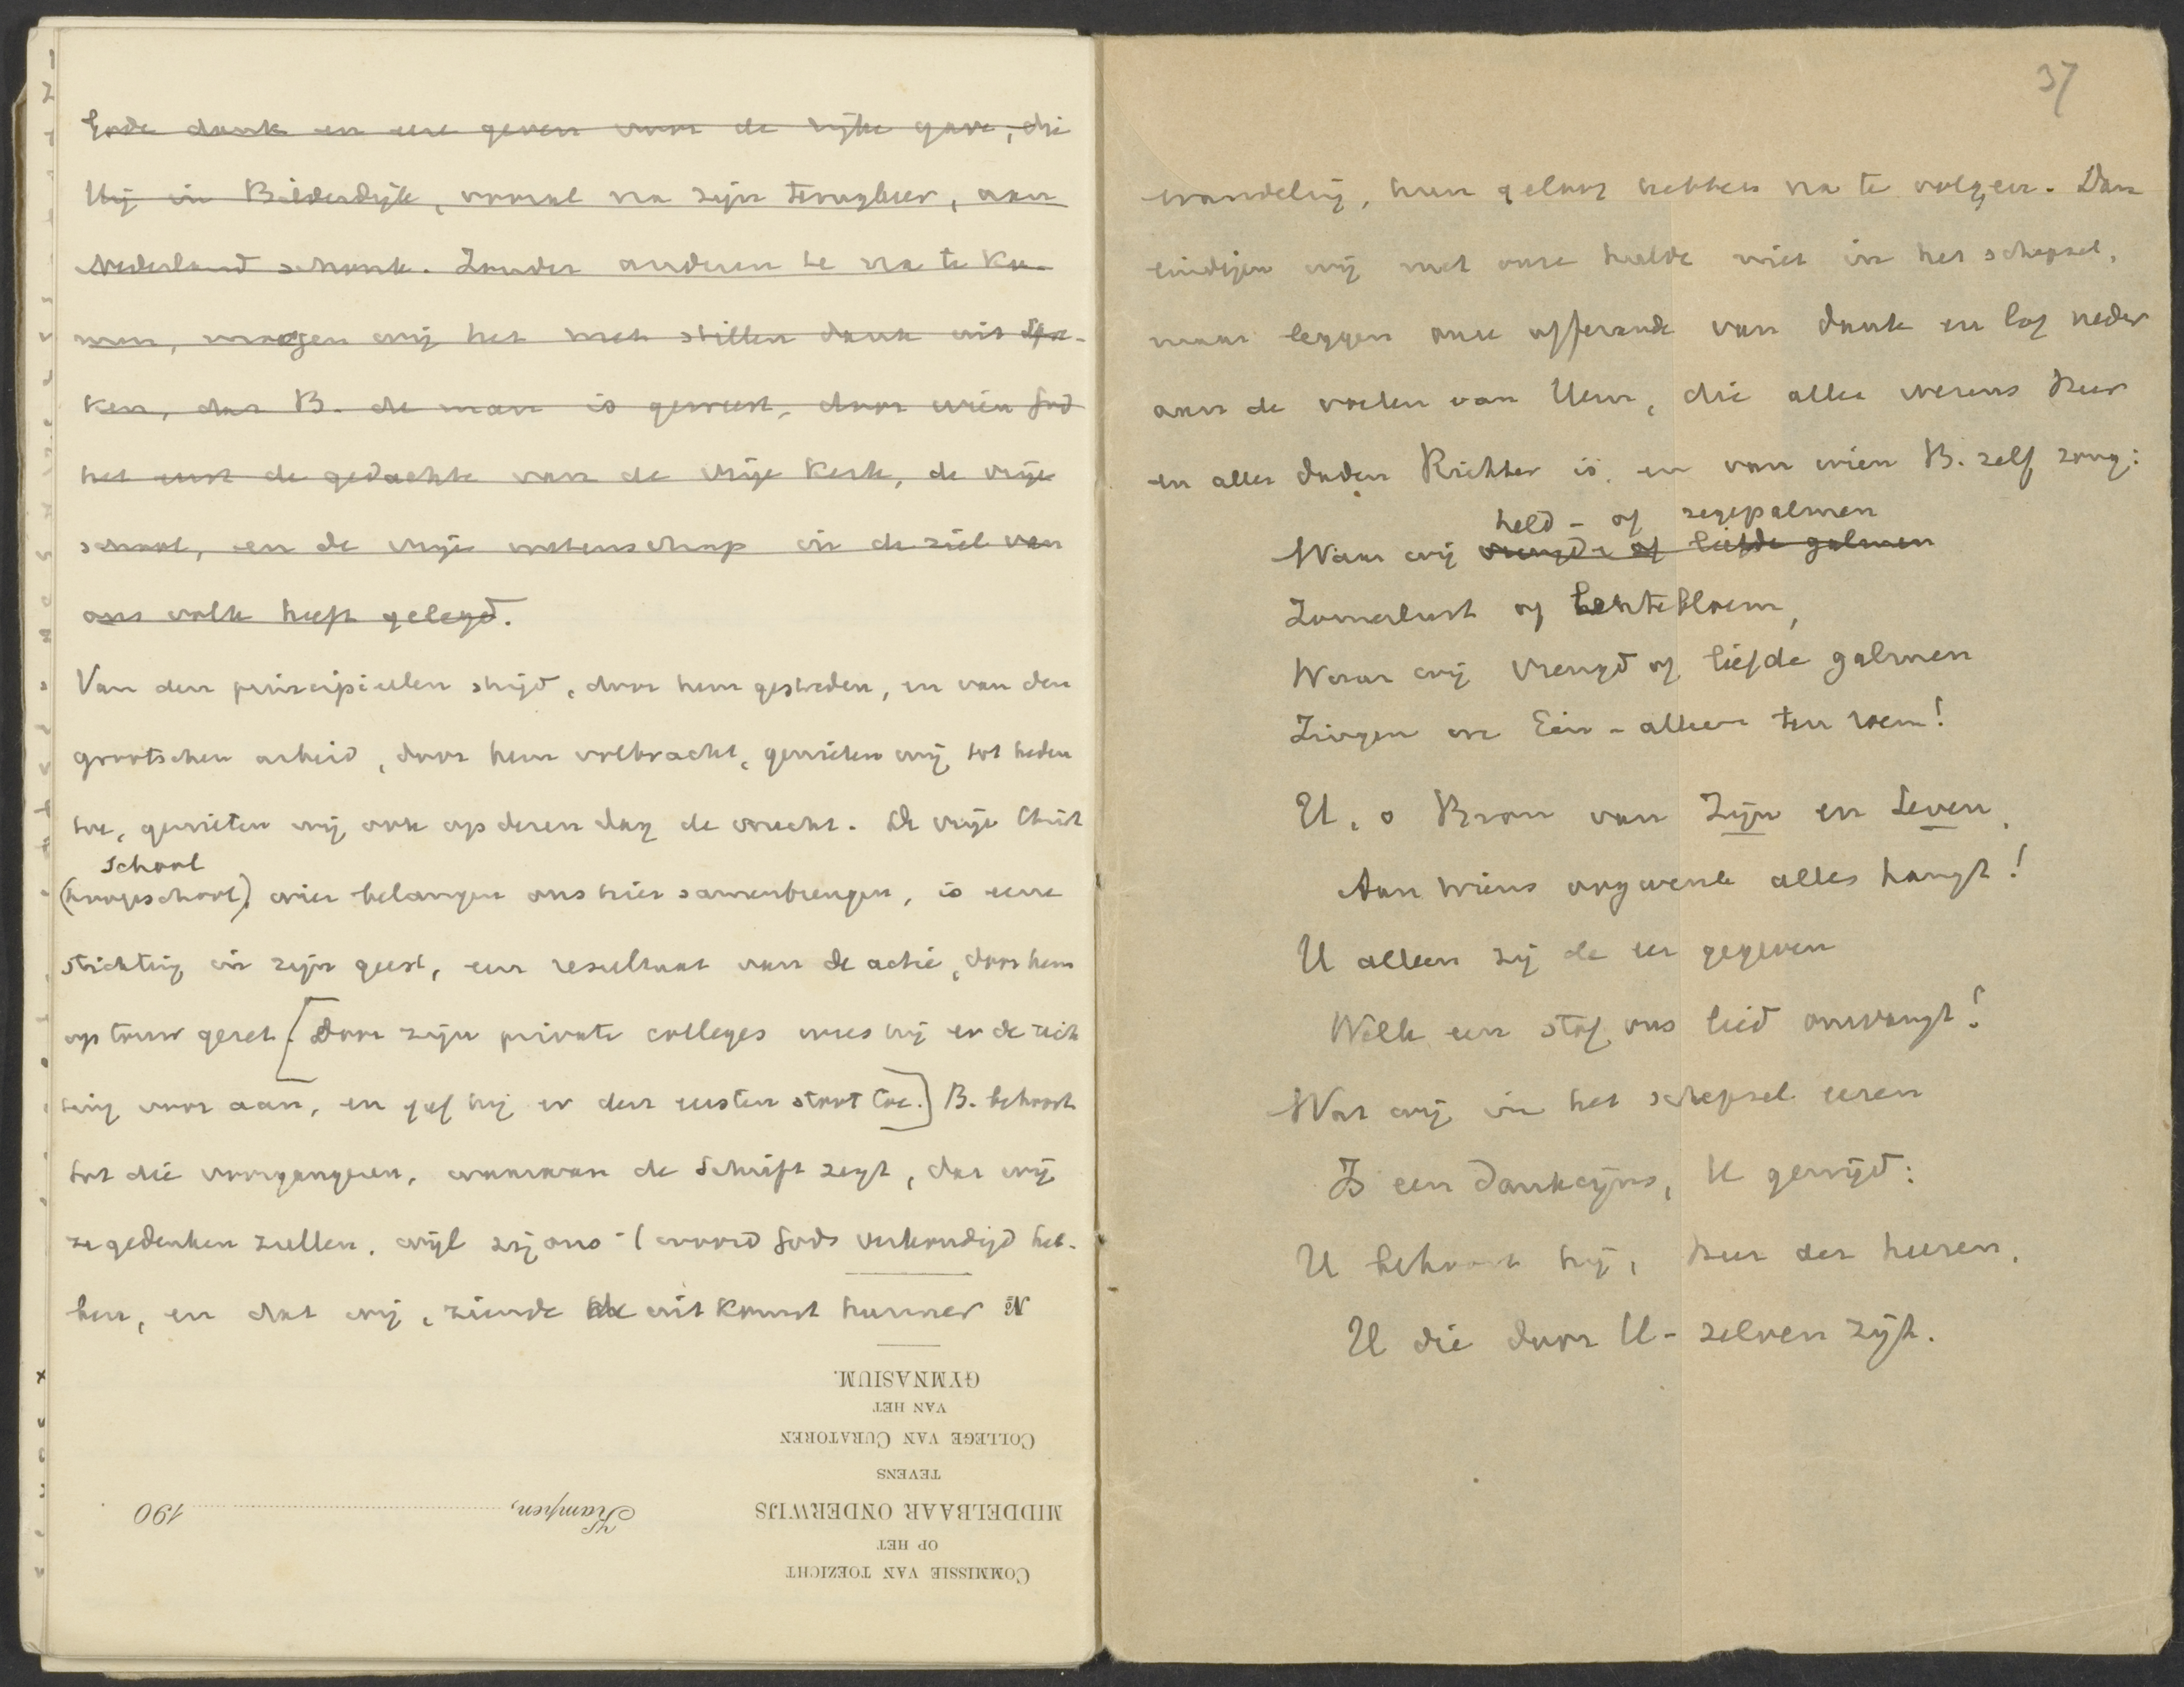 Gode dank en eere geven voor de rijke gave, die
Hij in Bilderdijk, vooral na zijn terugkeer, aan
Nederland schonk. Zonder anderen te na te ko-
men, mogen wij het met stillen dank uit spre-
ken, dat B. de man is geweest, door wien God
het eerst de gedachte van de vrije Kerk, de vrije
school, en de vrije wetenschap in de ziel van
ons volk heeft gelegd.
Van den principieelen strijd, door hem gestreden, en van den
grootschen arbeid, door hem volbracht, genieten wij tot heden
toe, genieten wij ook op dezen dag de vrucht. De vrije Christ
School
(hoogeschool) wier belangen ons hier samenbrengen, is eene
stichting in zijn geest, een resultaat van de actie, door hem
op touw gezet. [Door zijn private colleges wees hij er de rich
ting voor aan, en gaf hij er den eersten stoot toe.] B. behoort
tot die voorgangeren, waarvan de Schrift zegt, dat wij
ze gedenken zullen, wijl zij ons 't woord Gods verkondigd heb-
ben, en dat wij, ziende de uitkomst hunner
No
GYMNASIUM.
VAN HET
COLLEGE VAN CURATOREN
TEVENS
MIDDELBAAR ONDERWIJS
OP HET
COMMISSIE VAN TOEZICHT
Kampen, 190
37
wandeling, hun geloof hebben na te volgen. Dan
eindigen wij met onze hulde niet in het schepsel,
maar leggen onze offerande van dank en lof neder
aan de voeten van Hem, die aller wezens Heer
en aller daden Richter is, en van wien B. zelf zong:
held- of zegepalmen
Waar wij vreugd- of liefde galmen
Zomerlust of Lentebloem,
Waar wij vreugd of liefde galmen
Zingen we Eén-alleen ten roem!
U, o Bron van Zijn en Leven,
Aan wiens oogwenk alles hangt!
U alleen zij de eer gegeven
Welk een stof ons lied omvangt!
Wat wij in het schepsel eeren
Is een dankcijns, U gewijd:
U behoort hij, Heer der heeren,
U die door U-zelven zijt.